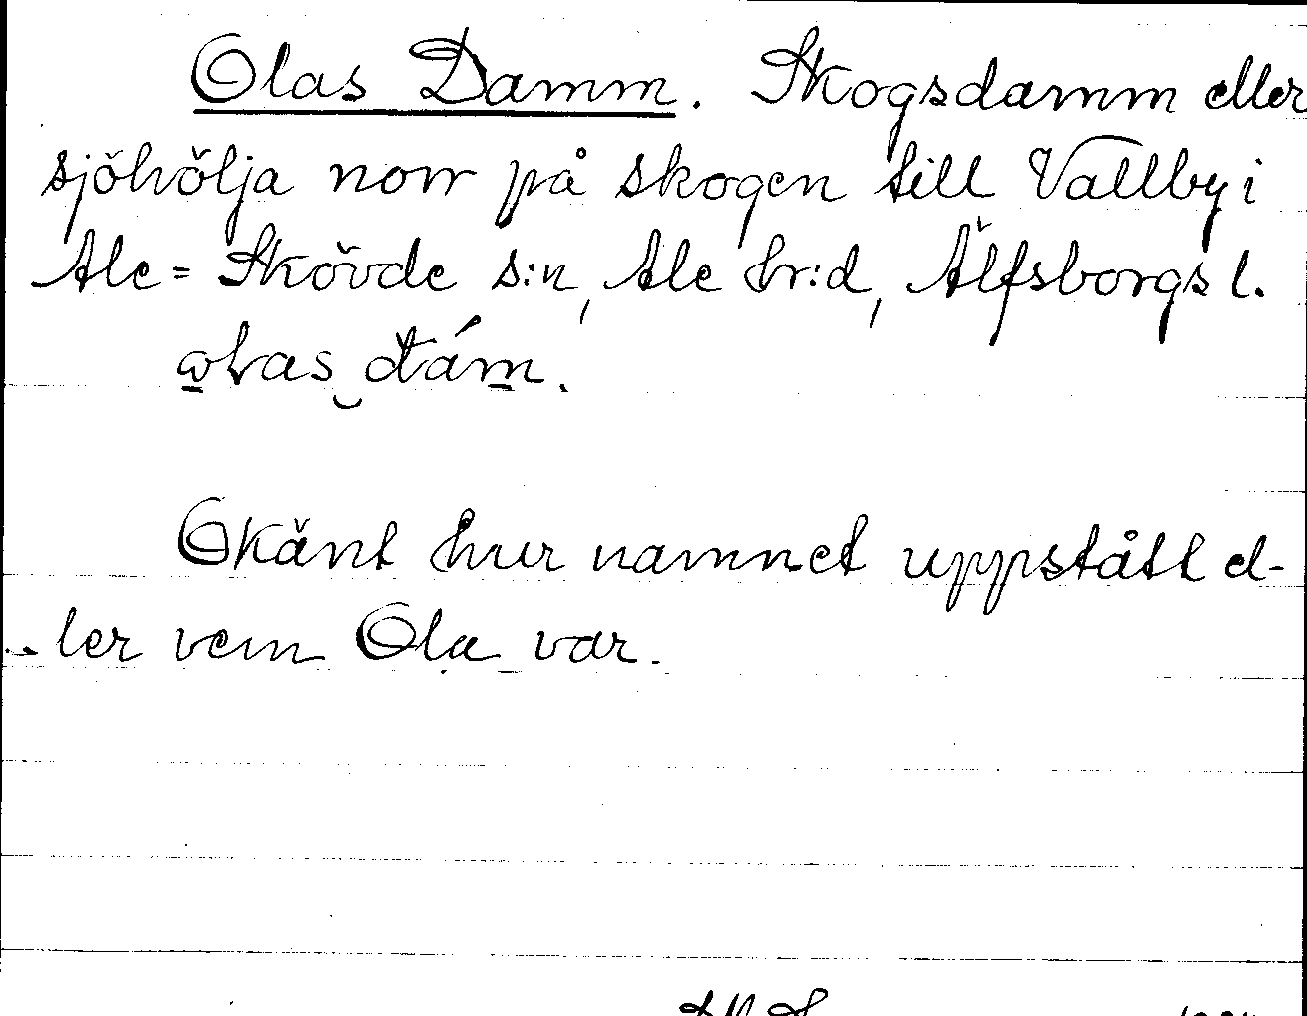 Olas Damm. Skogsdamm eller
sjöhölja norr på skogen till Vallby i
Ale=Skövde s:n, Ale hr:d, Älfsborgs l.
Okänt hur namnet uppstått el-
ler vem Ola var.